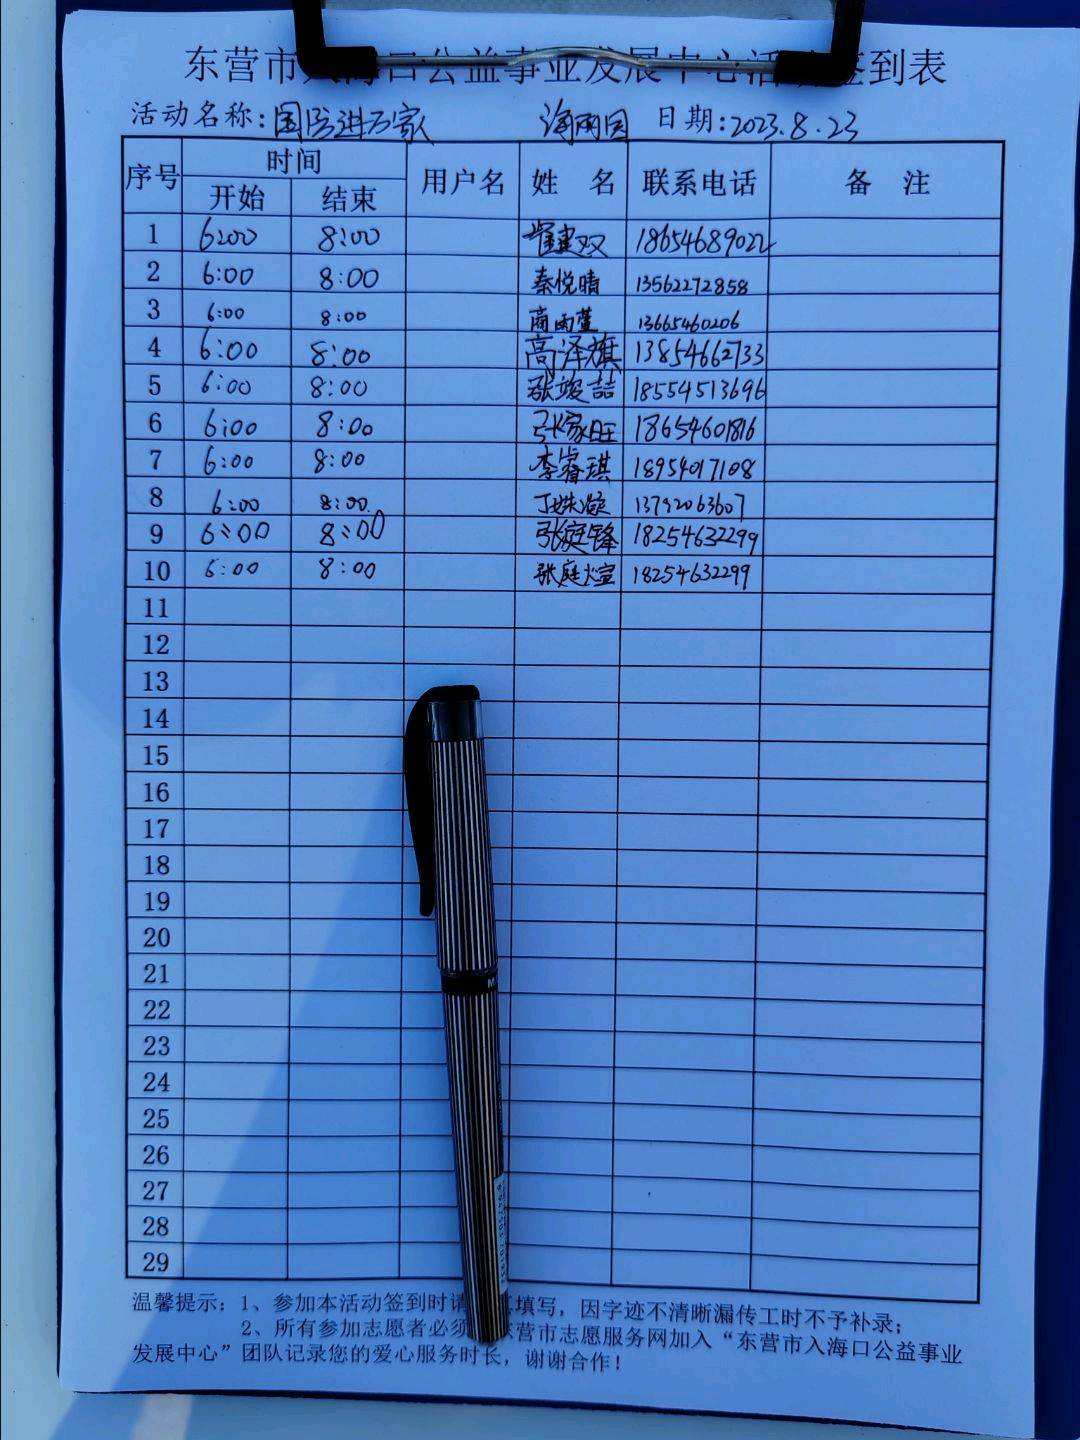 东营市入海口公益事业发展中心活动签到表
活动名称:国学进万家 海丽园 日期:2023.8.23
序号 时间 用户名 姓 名 联系电话 备 注
开始 结束
1 6:00 8:00 崔建双 18654689022
2 6:00 8:00 秦悦晴 13562272858
3 6:00 8:00 商雨萱 13665460206
4 6:00 8:00 高泽旗 13854662733
5 6:00 8:00 张竣喆 18554513696
6 6:00 8:00 张家旺 18654601816
7 6:00 8:00 李睿琪 18954017108
8 6:00 8:00. 丁姝 13792063607
9 6:00 8:00 张庭锋 18254632299
10 6:00 8:00 张庭煊 18254632299
11
12
13
14
15
16
17
18
19
20
21
22
23
24
25
26
27
28
29
温馨提示:1、参加本活动签到时请 填写,因字迹不清晰漏传工时不予补录;
2、所有参加志愿者必须 东营市志愿服务网加入“东营市入海口公益事业
发展中心”团队记录您的爱心服务时长,谢谢合作!